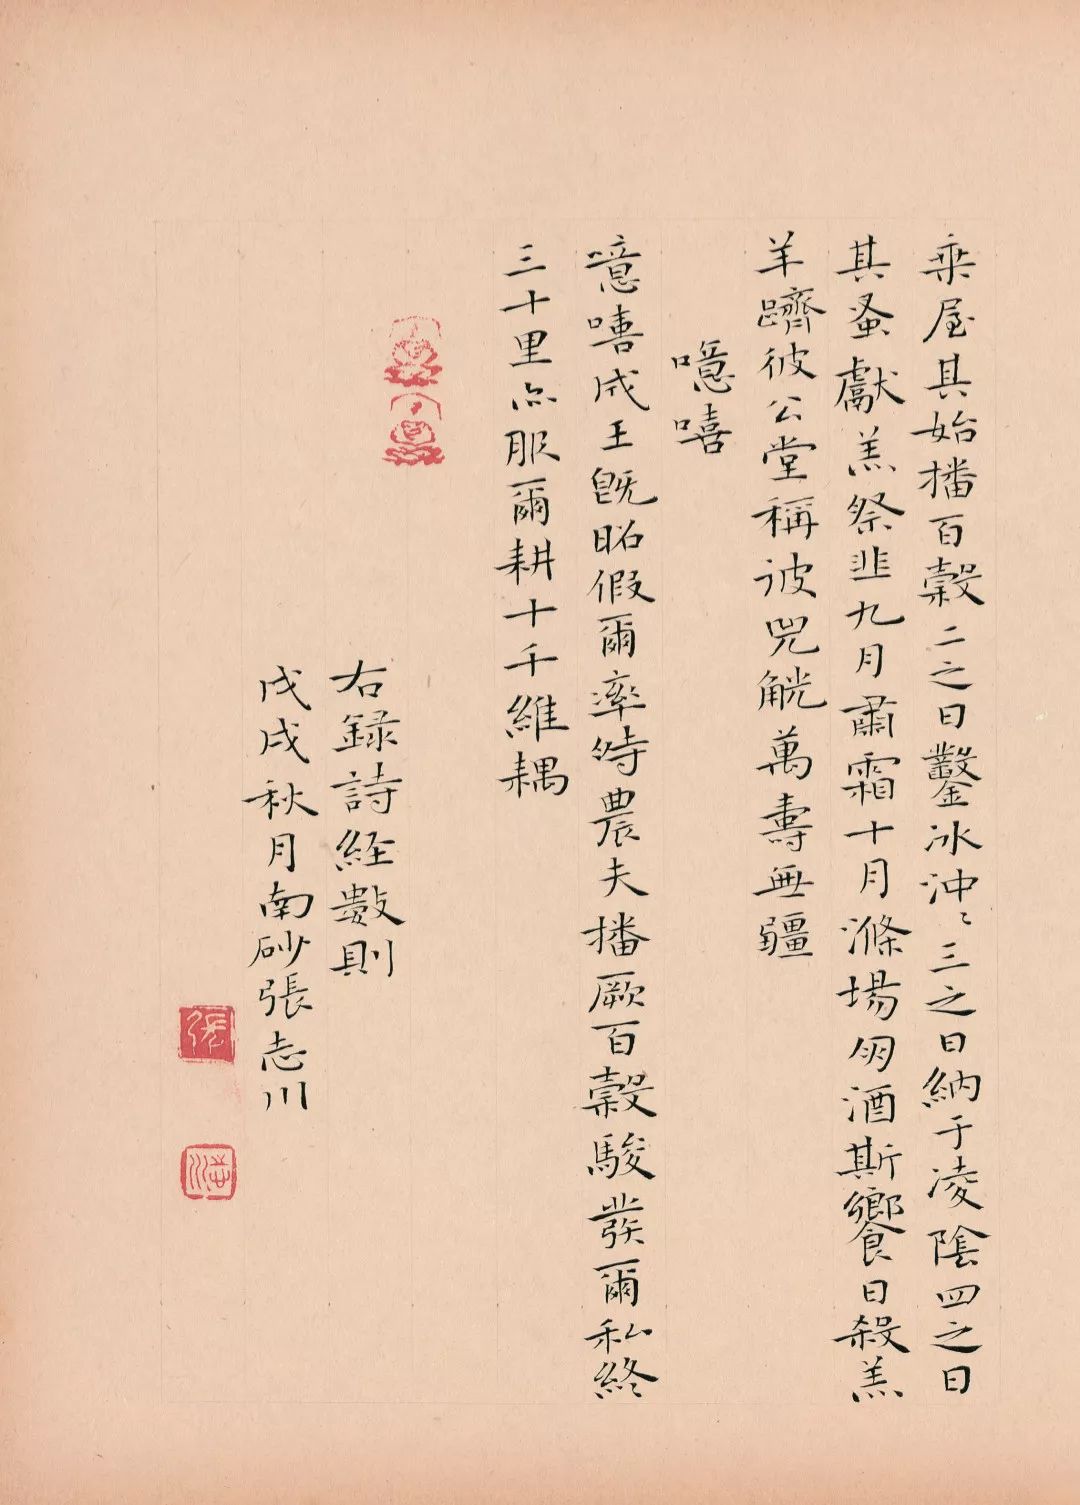 乘屋其始播百穀二之日鑿冰沖〻三之日納于凌陰四之日
其蚤獻羔祭韭九月肅霜十月滌場朋酒斯饗日殺羔
羊躋彼公堂稱彼兕觥萬壽無疆
噫嘻
噫嘻成王既昭假爾率時農夫播厥百穀駿發爾私終
三十里亦服爾耕十千維耦
右録詩経數則
戊戌秋月南砂張志川
張
志川